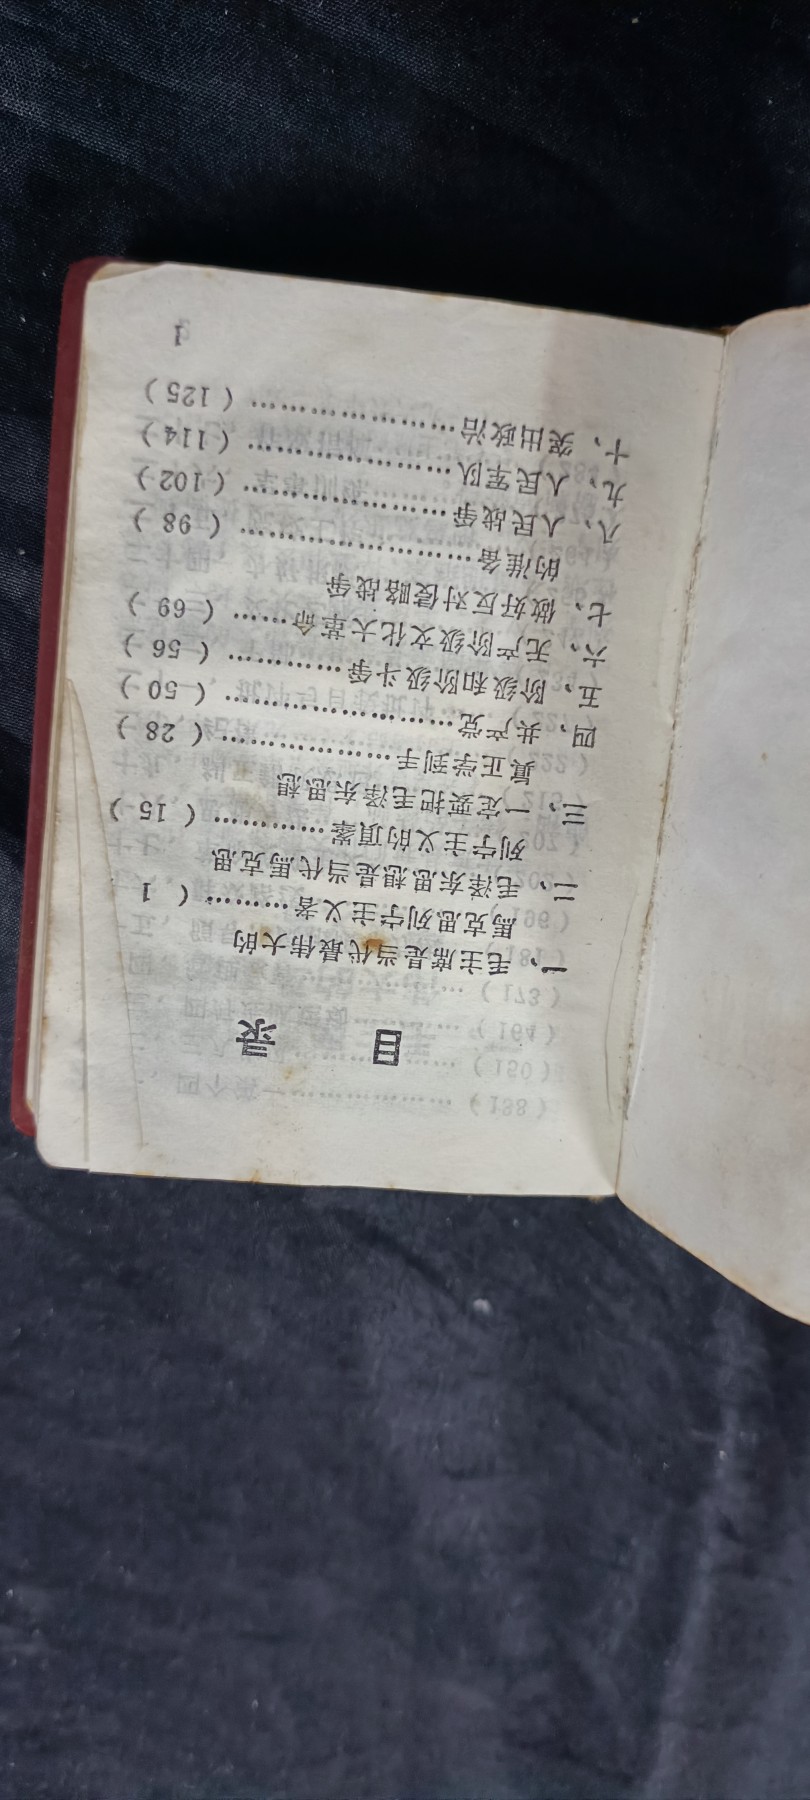 目 录
一、毛主席是当代最伟大的
馬克思列宁主义者………( 1
二、毛泽东思想是当代馬克思
列宁主义的頂峯…………( 15 )
三、一定要把毛泽东思想
眞正学到手………………( 28 )
四、共产党……………………( 50 )
五、阶级和阶级斗爭…………( 56 )
六、无产阶级文化大革命……( 69 )
七、做好反对侵略战爭
的准备……………………( 98 )
八、人民战爭…………………( 102 )
九、人民军队…………………( 114 )
十、突出政治…………………( 125 )
1